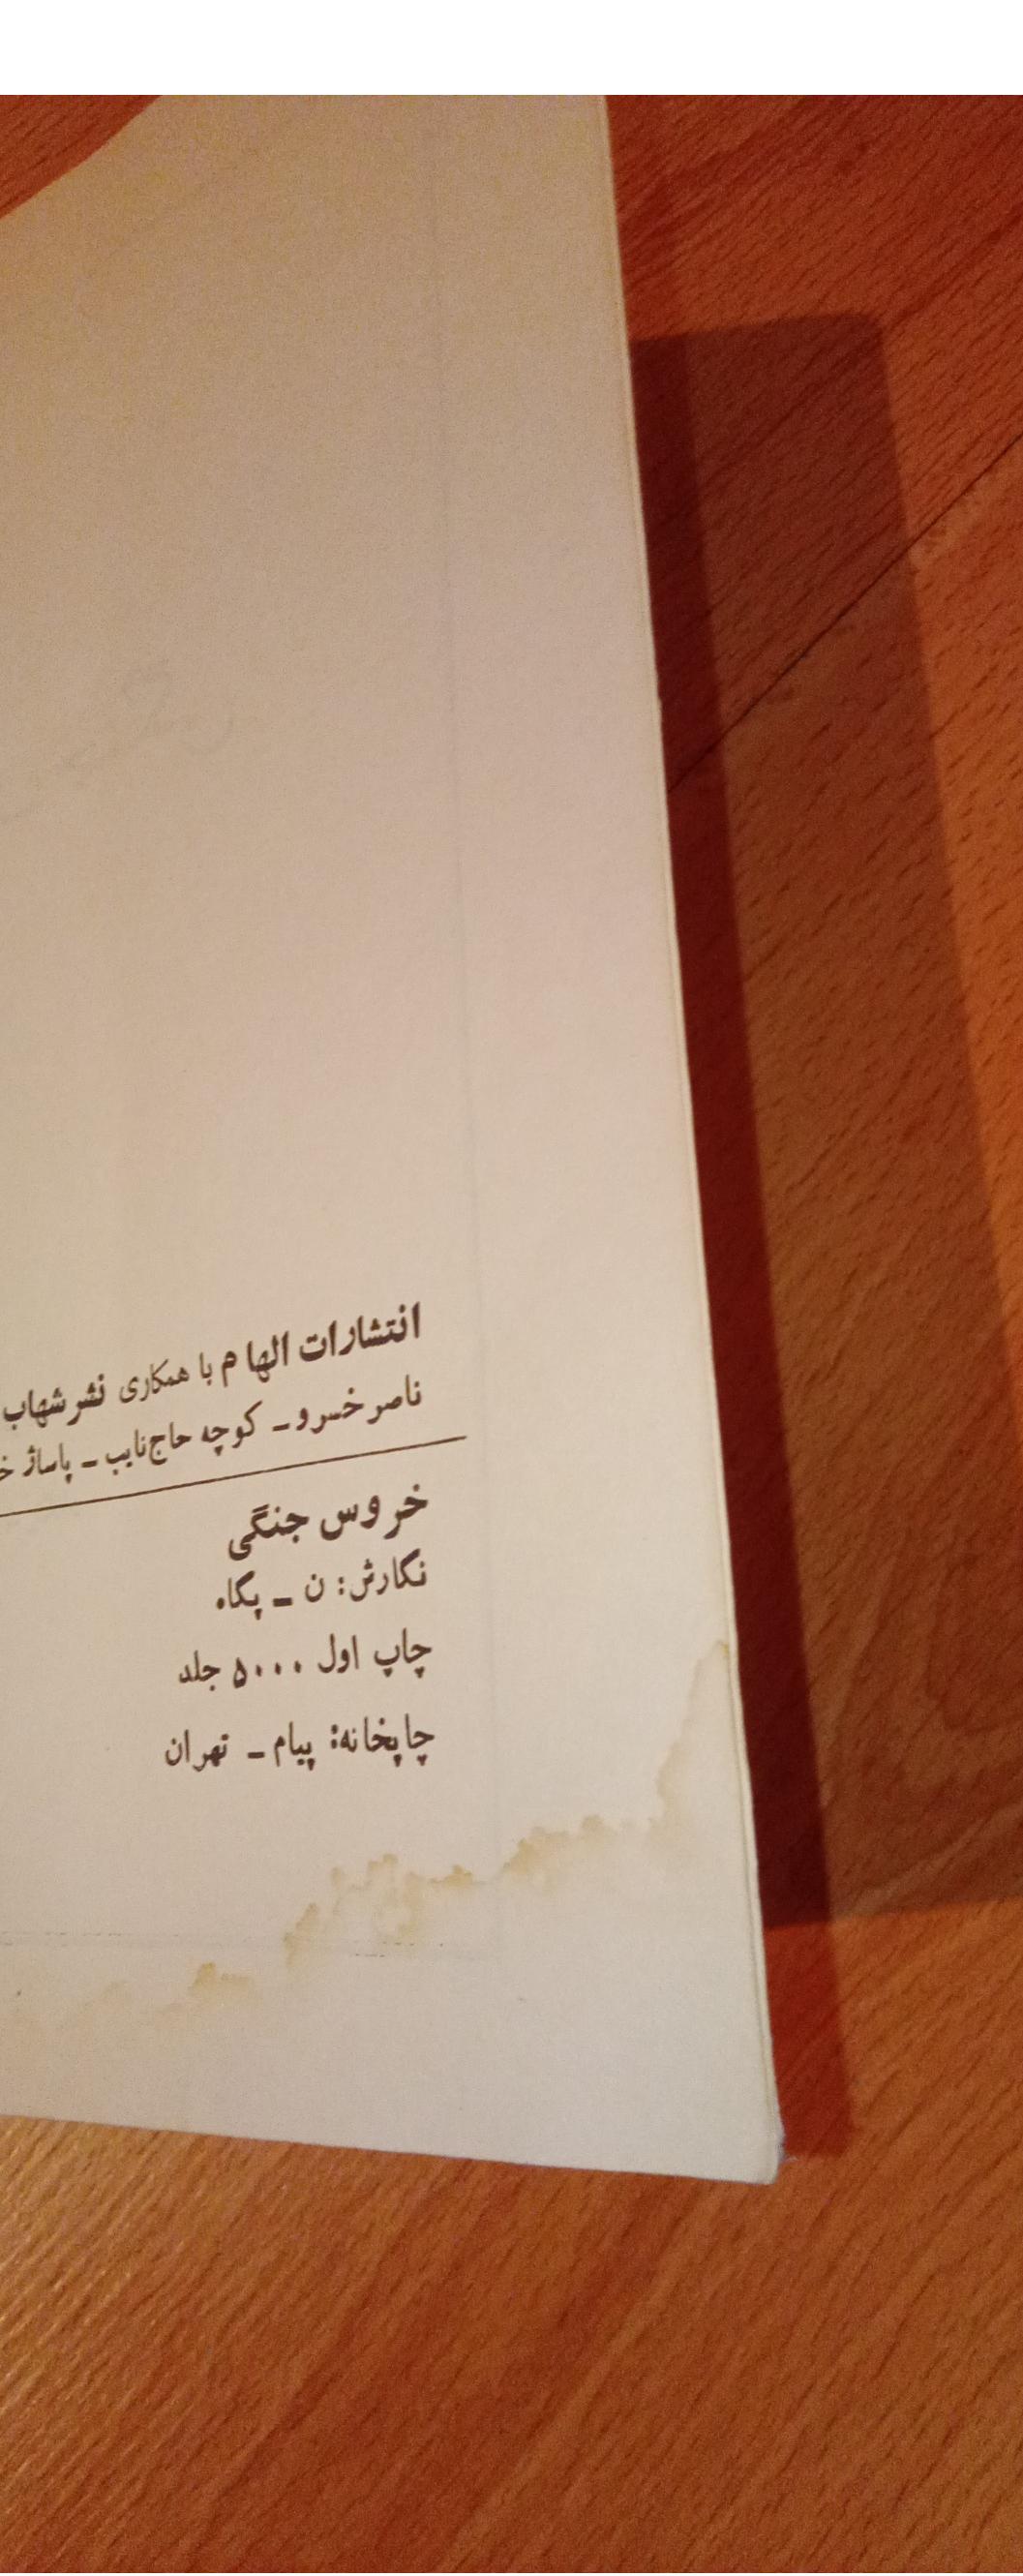 انتشارات الهام با همکاری نشر شهاب
ناصر خسرو ـ کوچه حاج‌نایب ـ پاساژ
خروس جنگی
نگارش: ن ـ پگاه
چاپ اول ۵۰۰۰ جلد
چاپخانه: پیام ـ تهران